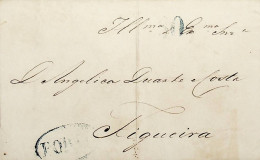 Illma e Exma Snra
D. Angelica Duarte Costa
Figueira